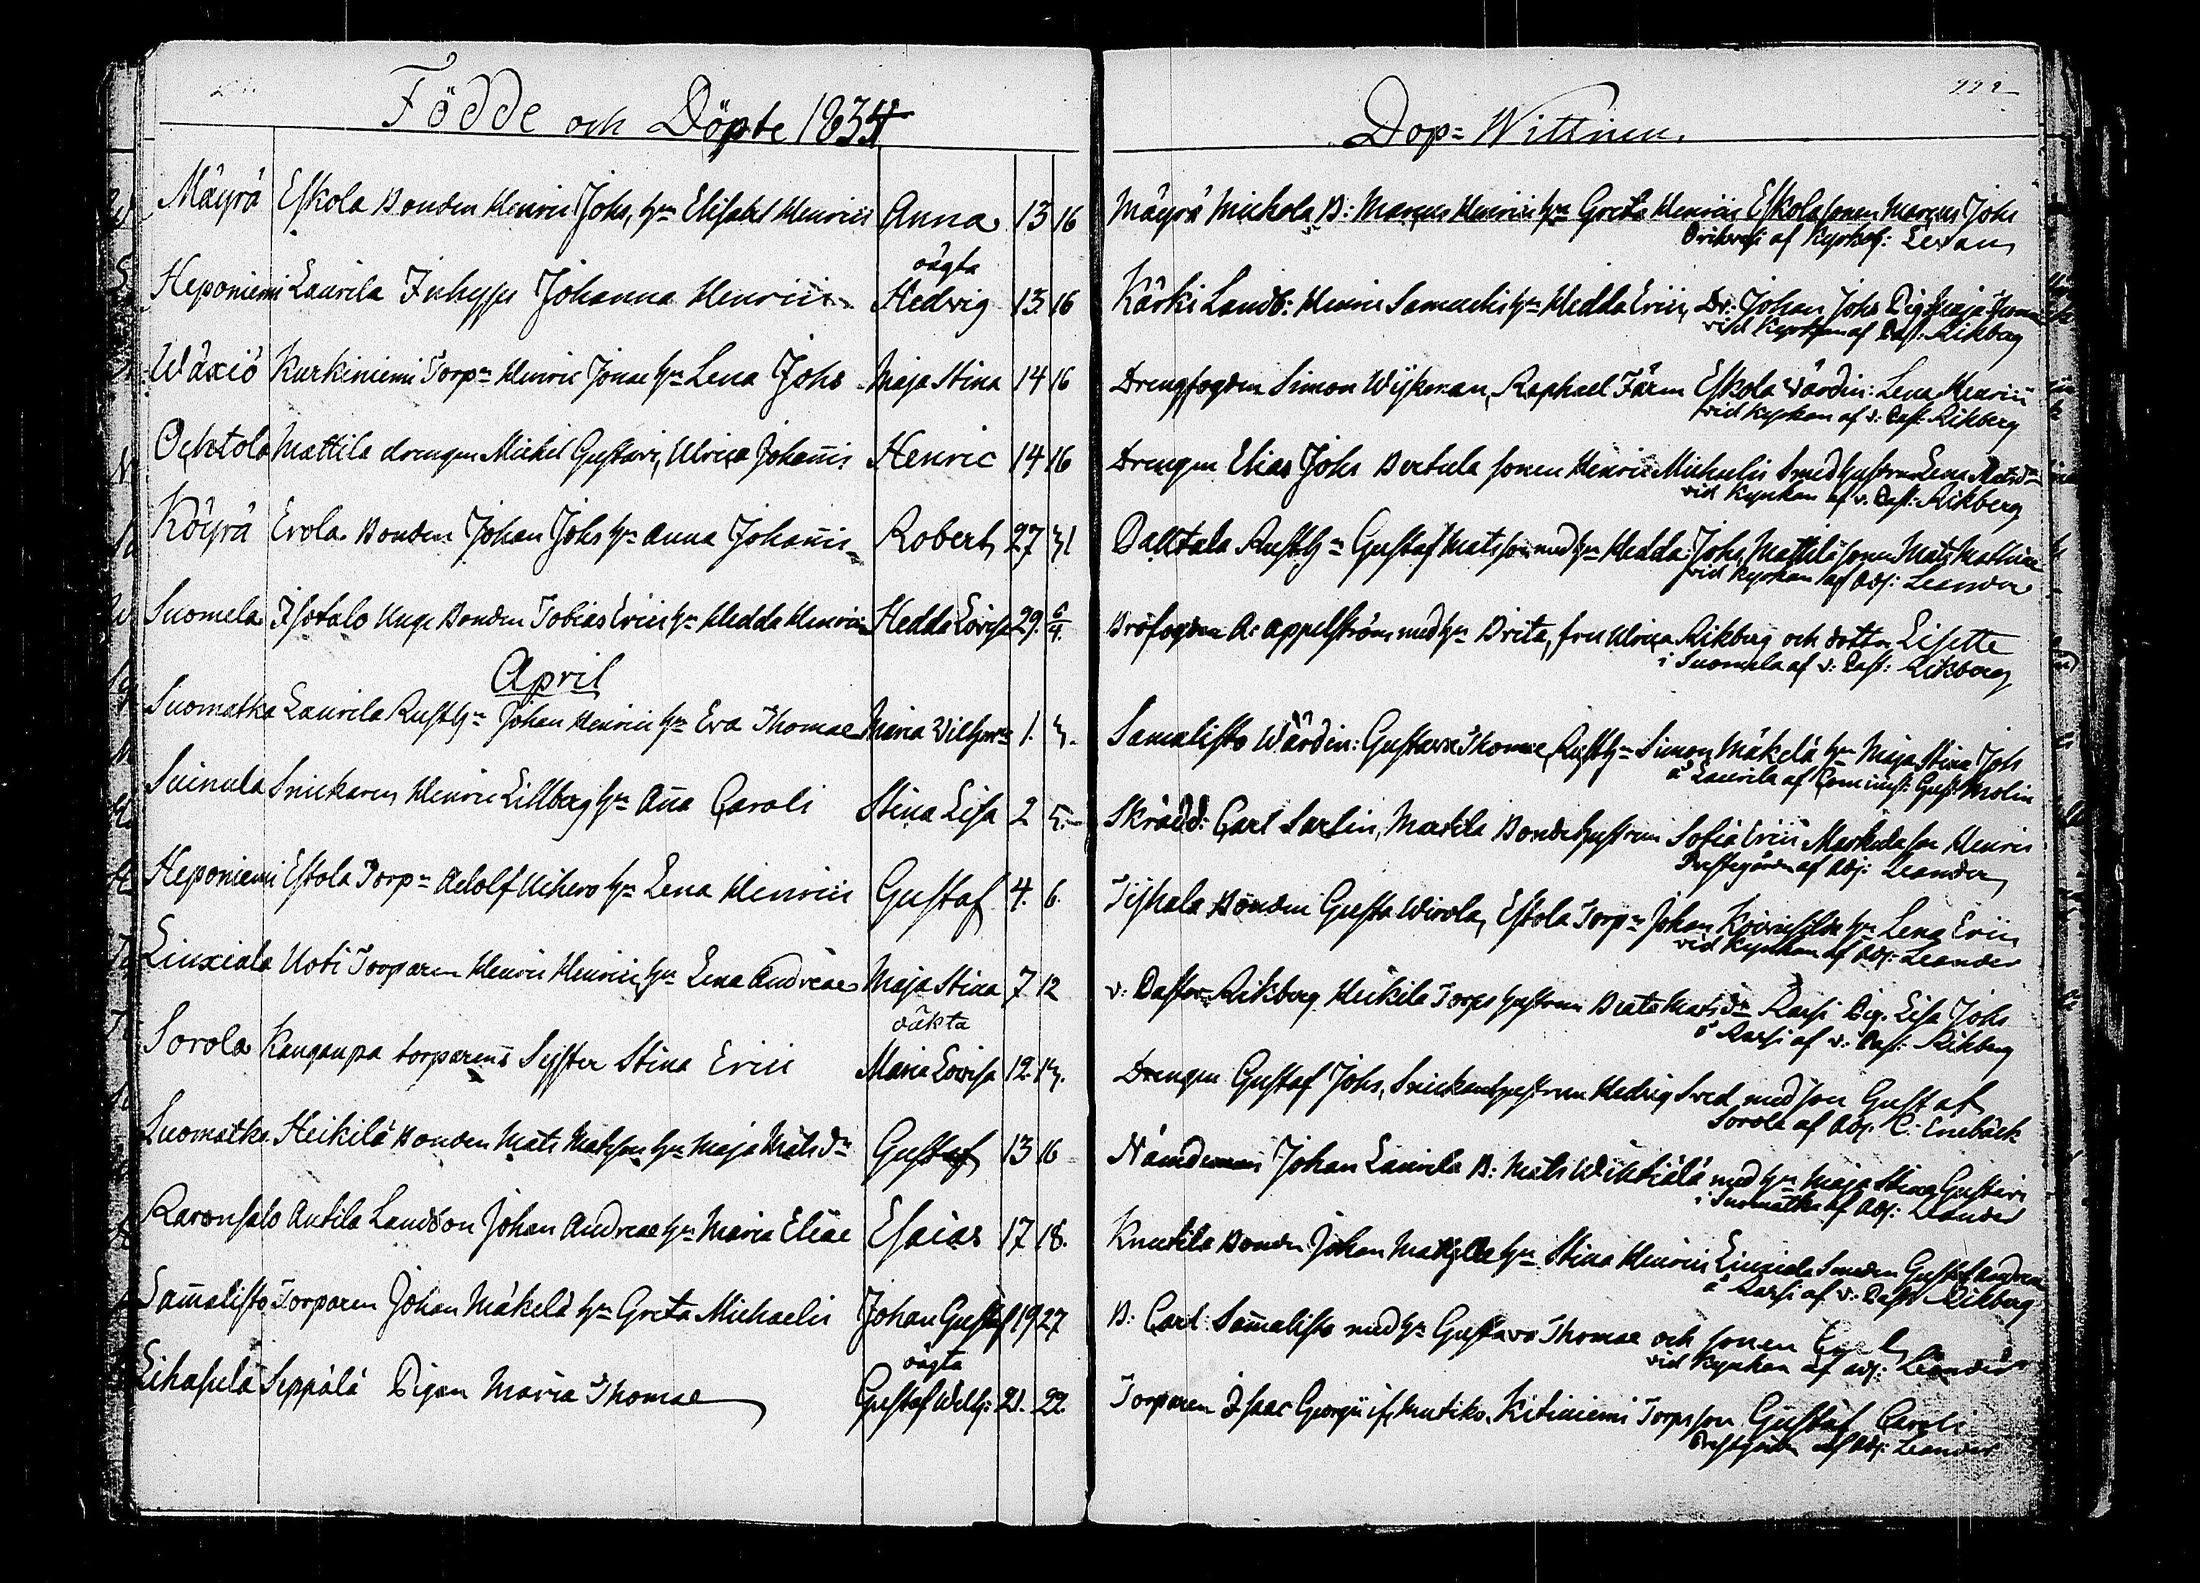 Födde och Döpte 1834
Mäyrä Eskola Bonden Henric Johs, hu Elisabet Henrici Anna 13 16
oägta
Heponiemi Laurila Inhyses Johanna Henrici Hedvig 13. 16
Wäxiö Kurkiniemi Torp:n Henric Jonae hu Lena Johs Maja Stina 14 16
Ochtola Mattila drengen Michel Gustavi, Ulrica Johañis Henric 14 16
Köyrä Erola Bonden Johan Johs hu Anna Johañis Robert 27 31
Suomela Isotalo Unge Bonden Tobias Erici hu Hedda Henrici Hedda Lovisa 29. 6/4.
April
Suomatka Laurila Rusth:n Johan Henrici hu Eva Thomae Maria Vilhelm: 1. 3.
Suinula Snickaren Henric Lillberg hu Aña Caroli Stina Lisa 2 5.
Heponiemi Estola Torp:n Adolf Uihero hu Lena Henrici Gustaf 4. 6.
Liuxiala Uoti Torparen Henric Henrici, hu Lena Andreae Maja Stina 7 12
oäkta
Sorola Kangaupa torparens Syster Stina Erici Maria Lovisa 12. 13.
Suomatka Heikilä Bonden Mats Matsson hu Maja Mats dr Gustaf 13 16
Raronsalo Antila Landbon Johan Andreae hu Maria Eliae Esaias 17 18.
Sam̃alisto Torparen Johan Mäkelä hu Greta Michaelis Johan Gustaf 19 27
oägta
Lihasula Seppälä Pigan Maria Thomae Gustaf Wilh: 21. 22.
Dop=Wittnen.
Mäyrä Mickola B: Marcus Henrici hu Greta Henrici Eskola sonen Marcus Johs
af Kyrkoh: Levan
Kärki Landb: Henric Samuelis hu Hedda Erici, Dr: Johan Johs Pig Maja
vid Kyrkan af Past: Rikberg
Drengfogden Simon Wijkman, Raphael Färm Eskola Värdin: Lena Henrici
vid kyrkan af v: Past: Rikberg
Drengen Elias Johs Bertula sonen Henric Michaelis Smedhustrun Lena Mats dr
vid Kyrkan af v. Past: Rikberg
Palltala Rusth:n Gustaf Matsson med hu Hedda Johs, Mattila sonen Mats Mathiae
vid Kyrkan af Adj: Leander
Brofogden A: Appelström med hu Brita, fru Ulrica Rikberg och dotter Lisette
i Suomela af v: Past: Rikberg
Samalisto Wärdin: Gustava Thomae, Rusth:n Simon Mäkelä hu Maja Stina Johs
å Laurila af Comminist: Gust: Molin
Skrädd: Carl Sarlin, Markila Bondehustrun Sofia Erici Markula son Henric
Prestgården af Adj: Leander
Tiihala Bonden Gusta Wirola, Estola Torp:n Johan Koivusilda hu Lena Erici
vid Kyrkan af Adj: Leander
v: Pastor Rikberg Heikila Torpshustrun Beata Mats dr Rarsi Pig. Lisa Johs
å Rarsi af v: Past: Rikberg
Drengen Gustaf Johs, Snickarehustrun Hedvig Sved med son Gustaf
Sorola af Adj. C. Enebäck
Nämdeman Johan Laurila B: Mats Wihtiälä med hu Maja Stina Gustavi
i Suomatka af Adj: Leander
Knutila Bonden Johan hu Stina Henrici Liuxiala Smeden Gustaf Andreae
å Rarsi af v: Past: Rikberg
B: Carl Sam̃alisto med hu Gustava Thomae och sonen
vid Kyrkan af adj: Leander
Torparen Isaac Georgii if, Mutiko, Kitiniemi Torps son Gustaf Caroli
Prestgården af Adj: Leander